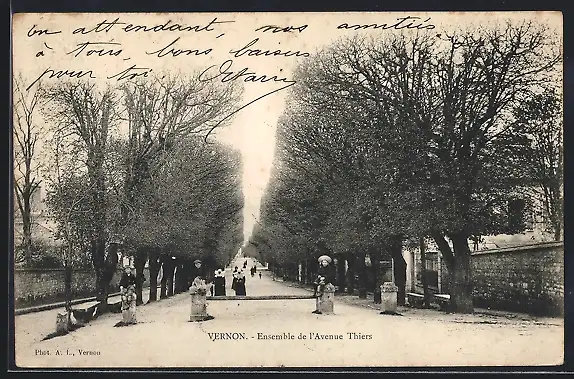 en attendant nos amitiés
à tous, bons baisers
pour toi
VERNON. - Ensemble de l'Avenue Thiers
Phot. A. L., Vernon